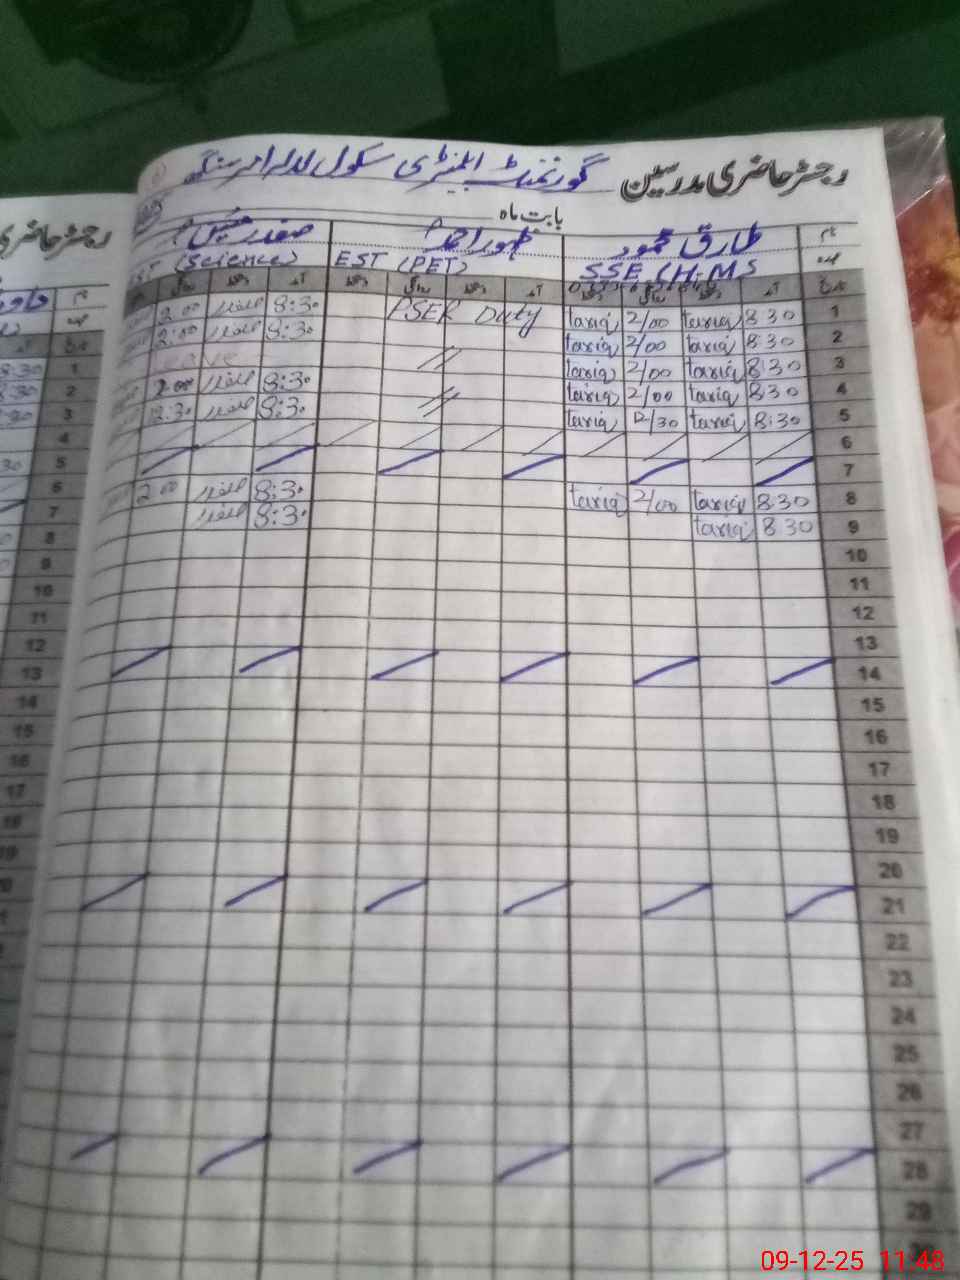 رجسٹر حاضری مدرسین گورنمنٹ ایلیمنٹری سکول
بابت ماہ
نام طارق محمود ظہور احمد صفدر حسین
عہدہ SSE (H.M) EST (PET) EST (Science)
تاریخ آمد دستخط روانگی دستخط آمد دستخط روانگی دستخط آمد دستخط روانگی
1 8:30 tariq 2/00 tariq PSER Duty 8:30 صفدر 2:00
2 8:30 tariq 2/00 tariq 8:30 صفدر 2:00
3 8:30 tariq 2/00 tariq // Leave
4 8:30 tariq 2/00 tariq 8:30 صفدر 2:00
5 8:30 tariq 12/30 tariq // 8:30 صفدر 12:30
6
7
8 8:30 tariq 2/00 tariq 8:30 صفدر 2:00
9 8:30 tariq 8:30 صفدر
10
11
12
13
14
15
16
17
18
19
20
21
22
23
24
25
26
27
28
29
رجسٹر حاضری
نام
عہدہ
تاریخ
1 8:30
2 8:30
3 8:30
4
5
6
7
8
9
10
11
12
13
14
15
16
17
18
19
20
09-12-25 11:48